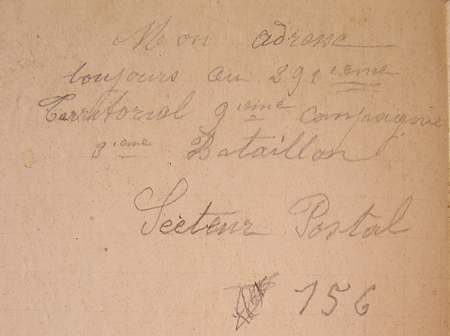 Mon adresse
toujours au 291 ieme
Territorial 9 ieme compagnie
9 ieme Bataillon
Secteur Postal
156